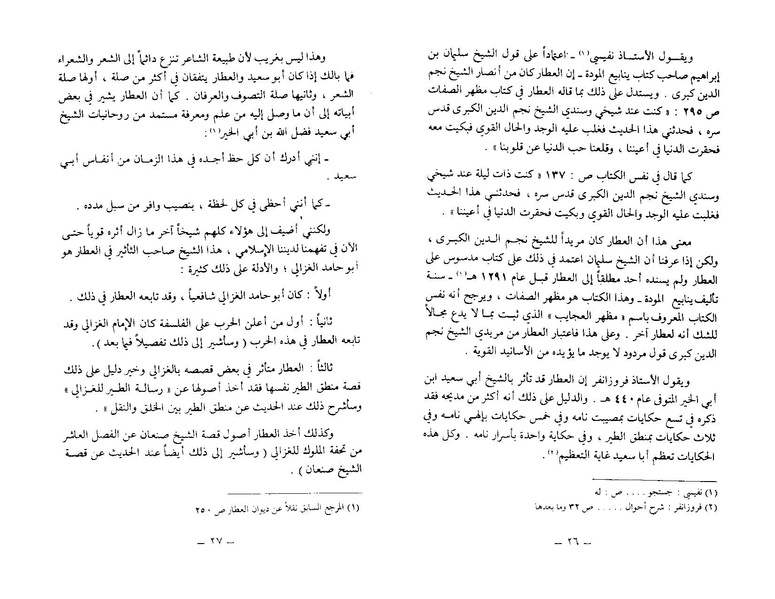 ويقول الأستاذ نفيسي(١) ـ اعتماداً على قول الشيخ سليمان بن
إبراهيم صاحب كتاب ينابيع المودة ـ إن العطار كان من أنصار الشيخ نجم
الدين كبرى . ويستدل على ذلك بما قاله العطار في كتاب مظهر الصفات
ص ٢٩٥ : « كنت عند شيخي وسندي الشيخ نجم الدين الكبرى قدس
سره ، فحدثني هذا الحديث فغلب عليه الوجد والحال القوي فبكيت معه
فحقرت الدنيا في أعيننا ، وقلعنا حب الدنيا عن قلوبنا » .
كما قال في نفس الكتاب ص : ١٣٧ « كنت ذات ليلة عند شيخي
وسندي الشيخ نجم الدين الكبرى قدس سره ، فحدثني هذا الحديث
فغلبت عليه الوجد والحال القوي وبكيت فحقرت الدنيا في أعيننا » .
معنى هذا أن العطار كان مريداً للشيخ نجم الدين الكبرى ،
ولكن إذا عرفنا أن الشيخ سليمان اعتمد في ذلك على كتاب مدسوس على
العطار ولم يسنده أحد مطلقاً إلى العطار قبل عام ١٢٩١ هـ(١) ـ سنة
تأليف ينابيع المودة ـ وهذا الكتاب هو مظهر الصفات ، ويرجح أنه نفس
الكتاب المعروف باسم « مظهر العجايب » الذي ثبت بما لا يدع مجالاً
للشك أنه لعطار آخر . وعلى هذا فاعتبار العطار من مريدي الشيخ نجم
الدين كبرى قول مردود لا يوجد ما يؤيده من الأسانيد القوية .
ويقول الأستاذ فروزانفر إن العطار قد تأثر بالشيخ أبي سعيد ابن
أبي الخير المتوفى عام ٤٤٠ هـ . والدليل على ذلك أنه أكثر من مديحه فقد
ذكره في تسع حكايات بمصيبت نامه وفي خمس حكايات بإلهي نامه وفي
ثلاث حكايات بمنطق الطير ، وفي حكاية واحدة بأسرار نامه . وكل هذه
الحكايات تعظم أبا سعيد غاية التعظيم(٢) .
(١) نفيسي : جستجو . . . . ص : له
(٢) فروزانفر : شرح أحوال . . . . . ص ٣٢ وما بعدها
ـ ٢٦ ـ
وهذا ليس بغريب لأن طبيعة الشاعر تنزع دائماً إلى الشعر والشعراء
فما بالك إذا كان أبو سعيد والعطار يتفقان في أكثر من صلة ، أولها صلة
الشعر ، وثانيها صلة التصوف والعرفان . كما أن العطار يشير في بعض
أبياته إلى أن ما وصل إليه من علم ومعرفة مستمد من روحانيات الشيخ
أبي سعيد فضل الله بن أبي الخير(١) :
ـ إنني أدرك أن كل حظ أجده في هذا الزمان من أنفاس أبي
سعيد .
ـ كما أنني أحظى في كل لحظة ، بنصيب وافر من سبل مدده .
ولكنني أضيف إلى هؤلاء كلهم شيخاً آخر ما زال أثره قوياً حتى
الآن في تفهمنا لديننا الإسلامي ، هذا الشيخ صاحب التأثير في العطار هو
أبو حامد الغزالي ؛ والأدلة على ذلك كثيرة :
أولاً : كان أبو حامد الغزالي شافعياً ، وقد تابعه العطار في ذلك .
ثانياً : أول من أعلن الحرب على الفلسفة كان الإمام الغزالي وقد
تابعه العطار في هذه الحرب ( وسأشير إلى ذلك تفصيلاً فيما بعد ) .
ثالثاً : العطار متأثر في بعض قصصه بالغزالي وخير دليل على ذلك
قصة منطق الطير نفسها فقد أخذ أصولها عن « رسالة الطير للغزالي »
وسأشرح ذلك عند الحديث عن منطق الطير بين الخلق والنقل » .
وكذلك أخذ العطار أصول قصة الشيخ صنعان عن الفصل العاشر
من تحفة الملوك للغزالي ( وسأشير إلى ذلك أيضاً عند الحديث عن قصة
الشيخ صنعان ) .
(١) المرجع السابق نقلاً عن ديوان العطار ص ٢٥٠
ـ ٢٧ ـ